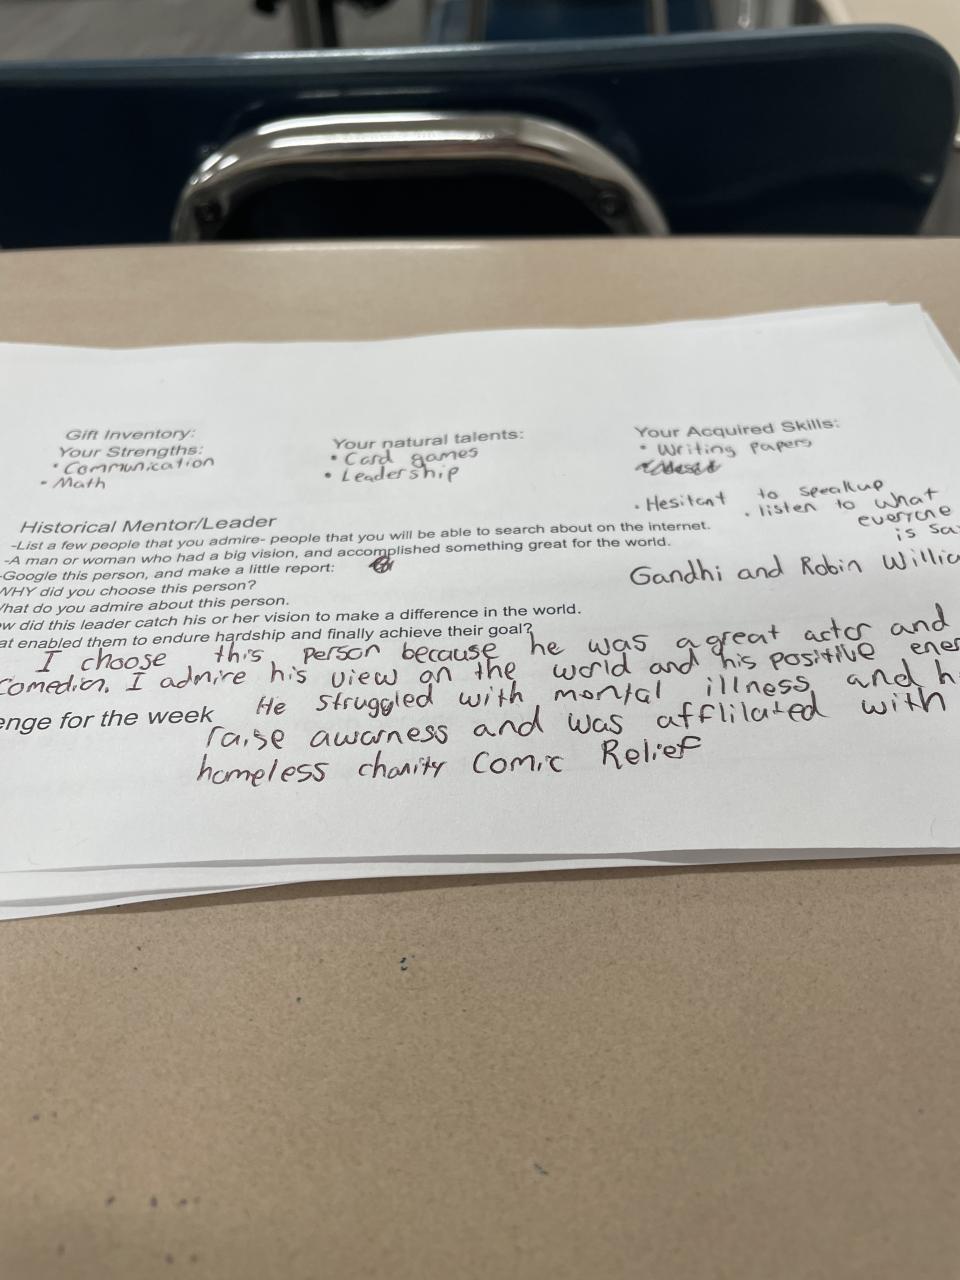 Gift Inventory:
Your Strengths:
• Communication
• Math
Your natural talents:
• Card games
• Leadership
Your Acquired Skills:
• Writing Papers
• Hesitant to speakup
• listen to what
everyone
is sa
Historical Mentor/Leader
-List a few people that you admire- people that you will be able to search about on the internet.
-A man or woman who had a big vision, and accomplished something great for the world.
-Google this person, and make a little report:
WHY did you choose this person?
What do you admire about this person.
ow did this leader catch his or her vision to make a difference in the world.
at enabled them to endure hardship and finally achieve their goal?
Gandhi and Robin Willia
I choose this person because he was a great actor and
Comedian. I admire his view on the world and his positive ener
enge for the week
He struggled with mental illness and h
raise awarness and was afflilated with
homeless charity Comic Relief